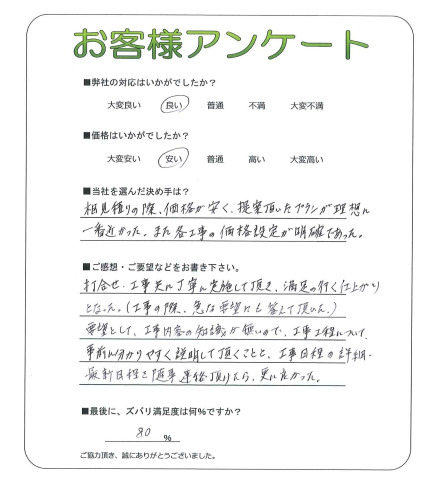 お客様アンケート
■弊社の対応はいかがでしたか？
大変良い 良い 普通 不満 大変不満
■価格はいかがでしたか？
大変安い 安い 普通 高い 大変高い
■当社を選んだ決め手は？
相見積りの際、価格が安く、提案頂いたプランが理想に
一番近かった。また各工事の価格設定が明確であった。
■ご感想・ご要望などをお書き下さい。
打合せ・工事共に丁寧に実施して頂き、満足の行く仕上がり
となった。(工事の際、急な要望にも答えて頂いた。)
要望として、工事内容の知識が無いので、工事工程について
事前に分かりやすく説明して頂くことと、工事日程の詳細・
最新日程を随事連絡頂けたら、更に良かった。
■最後に、ズバリ満足度は何%ですか？
80 %
ご協力頂き、誠にありがとうございました。